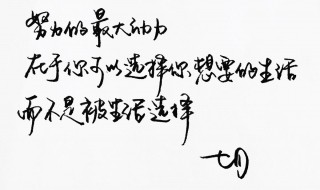 努力的最大动力
在于你可以选择你想要的生活
而不是被生活选择
七月